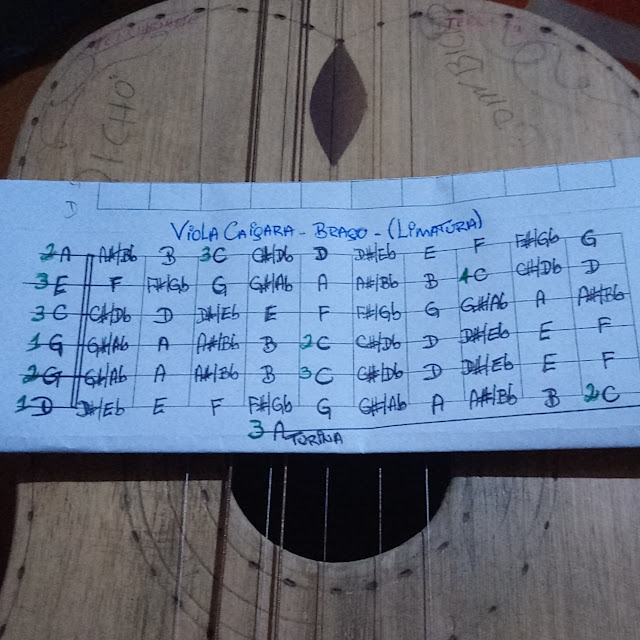 D
VIOLA CAIÇARA - BRAÇO - (LIMATURA)
2A A#/Bb B 3C C#/Db D D#/Eb E F F#/Gb G
3E F F#/Gb G G#/Ab A A#/Bb B 1C C#/Db D
3C C#/Db D D#/Eb E F F#/Gb G G#/Ab A A#/Bb
1G G#/Ab A A#/Bb B 2C C#/Db D D#/Eb E F
2G G#/Ab A A#/Bb B 3C C#/Db D D#/Eb E F
1D D#/Eb E F F#/Gb G G#/Ab A A#/Bb B 2C
3 A TURINA